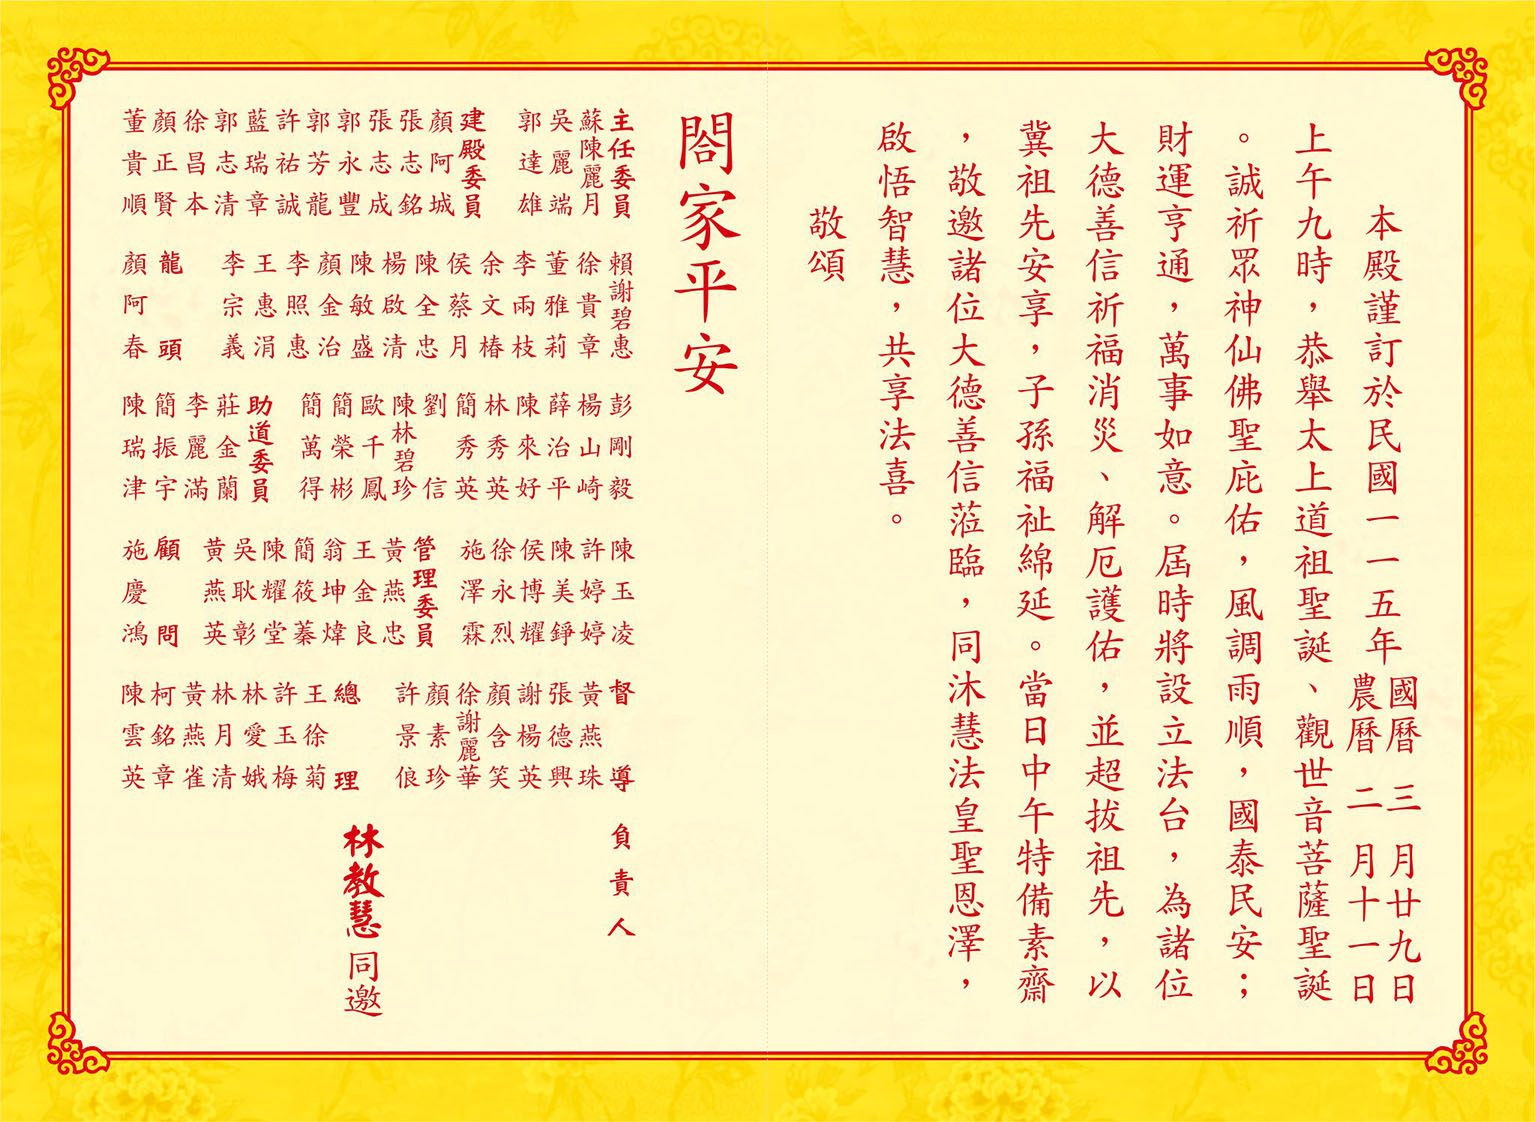 本殿謹訂於民國一一五年國曆三月廿九日
農曆二月十一日
上午九時，恭舉太上道祖聖誕、觀世音菩薩聖誕
。誠祈眾神仙佛聖庇佑，風調雨順，國泰民安；
財運亨通，萬事如意。屆時將設立法台，為諸位
大德善信祈福消災、解厄護佑，並超拔祖先，以
冀祖先安享，子孫福祉綿延。當日中午特備素齋
，敬邀諸位大德善信蒞臨，同沐慧法皇聖恩澤，
啟悟智慧，共享法喜。
敬頌
閤家平安
主任委員
蘇陳麗月
吳麗端
郭達雄
建殿委員
顏阿城
張志銘
張志成
郭永豐
郭芳龍
許祐誠
藍瑞章
郭志清
徐昌本
顏正賢
董貴順
賴謝碧惠
徐貴章
董雅莉
李雨枝
余文椿
侯蔡月
陳全忠
楊啟清
陳敏盛
顏金治
李照惠
王惠涓
李宗義
龍頭
顏阿春
彭剛毅
楊山崎
薛治平
陳來好
林秀英
簡秀英
劉信
陳林碧珍
歐千鳳
簡榮彬
簡萬得
助道委員
莊金蘭
李麗滿
簡振宇
陳瑞津
陳玉凌
許婷婷
陳美錚
侯博耀
徐永烈
施澤霖
管理委員
黃燕忠
王金良
翁坤煒
簡筱蓁
陳耀堂
吳耿彰
黃燕英
顧問
施慶鴻
督導
黃燕珠
張德興
謝楊英
顏含笑
徐謝麗華
顏素珍
許景俍
總理
王徐菊
許玉梅
林愛娥
林月清
黃燕雀
柯銘章
陳雲英
負責人
林教慧同邀